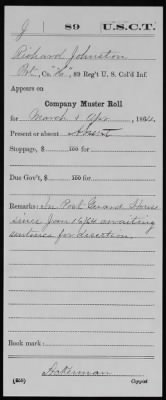 J | 89 | U.S.C.T.
Richard Johnston
Pvt, Co. "C", 89 Reg't U. S. Col'd Inf.
Appears on
Company Muster Roll
for March & Apr, 1864.
Present or absent Absent
Stoppage, $ 100 for
Due Gov't, $ 100 for
Remarks: In Post Guard House
since Jan 16/64 awaiting
sentence for desertion.
Book mark:
Ackerman
(358) Copyist